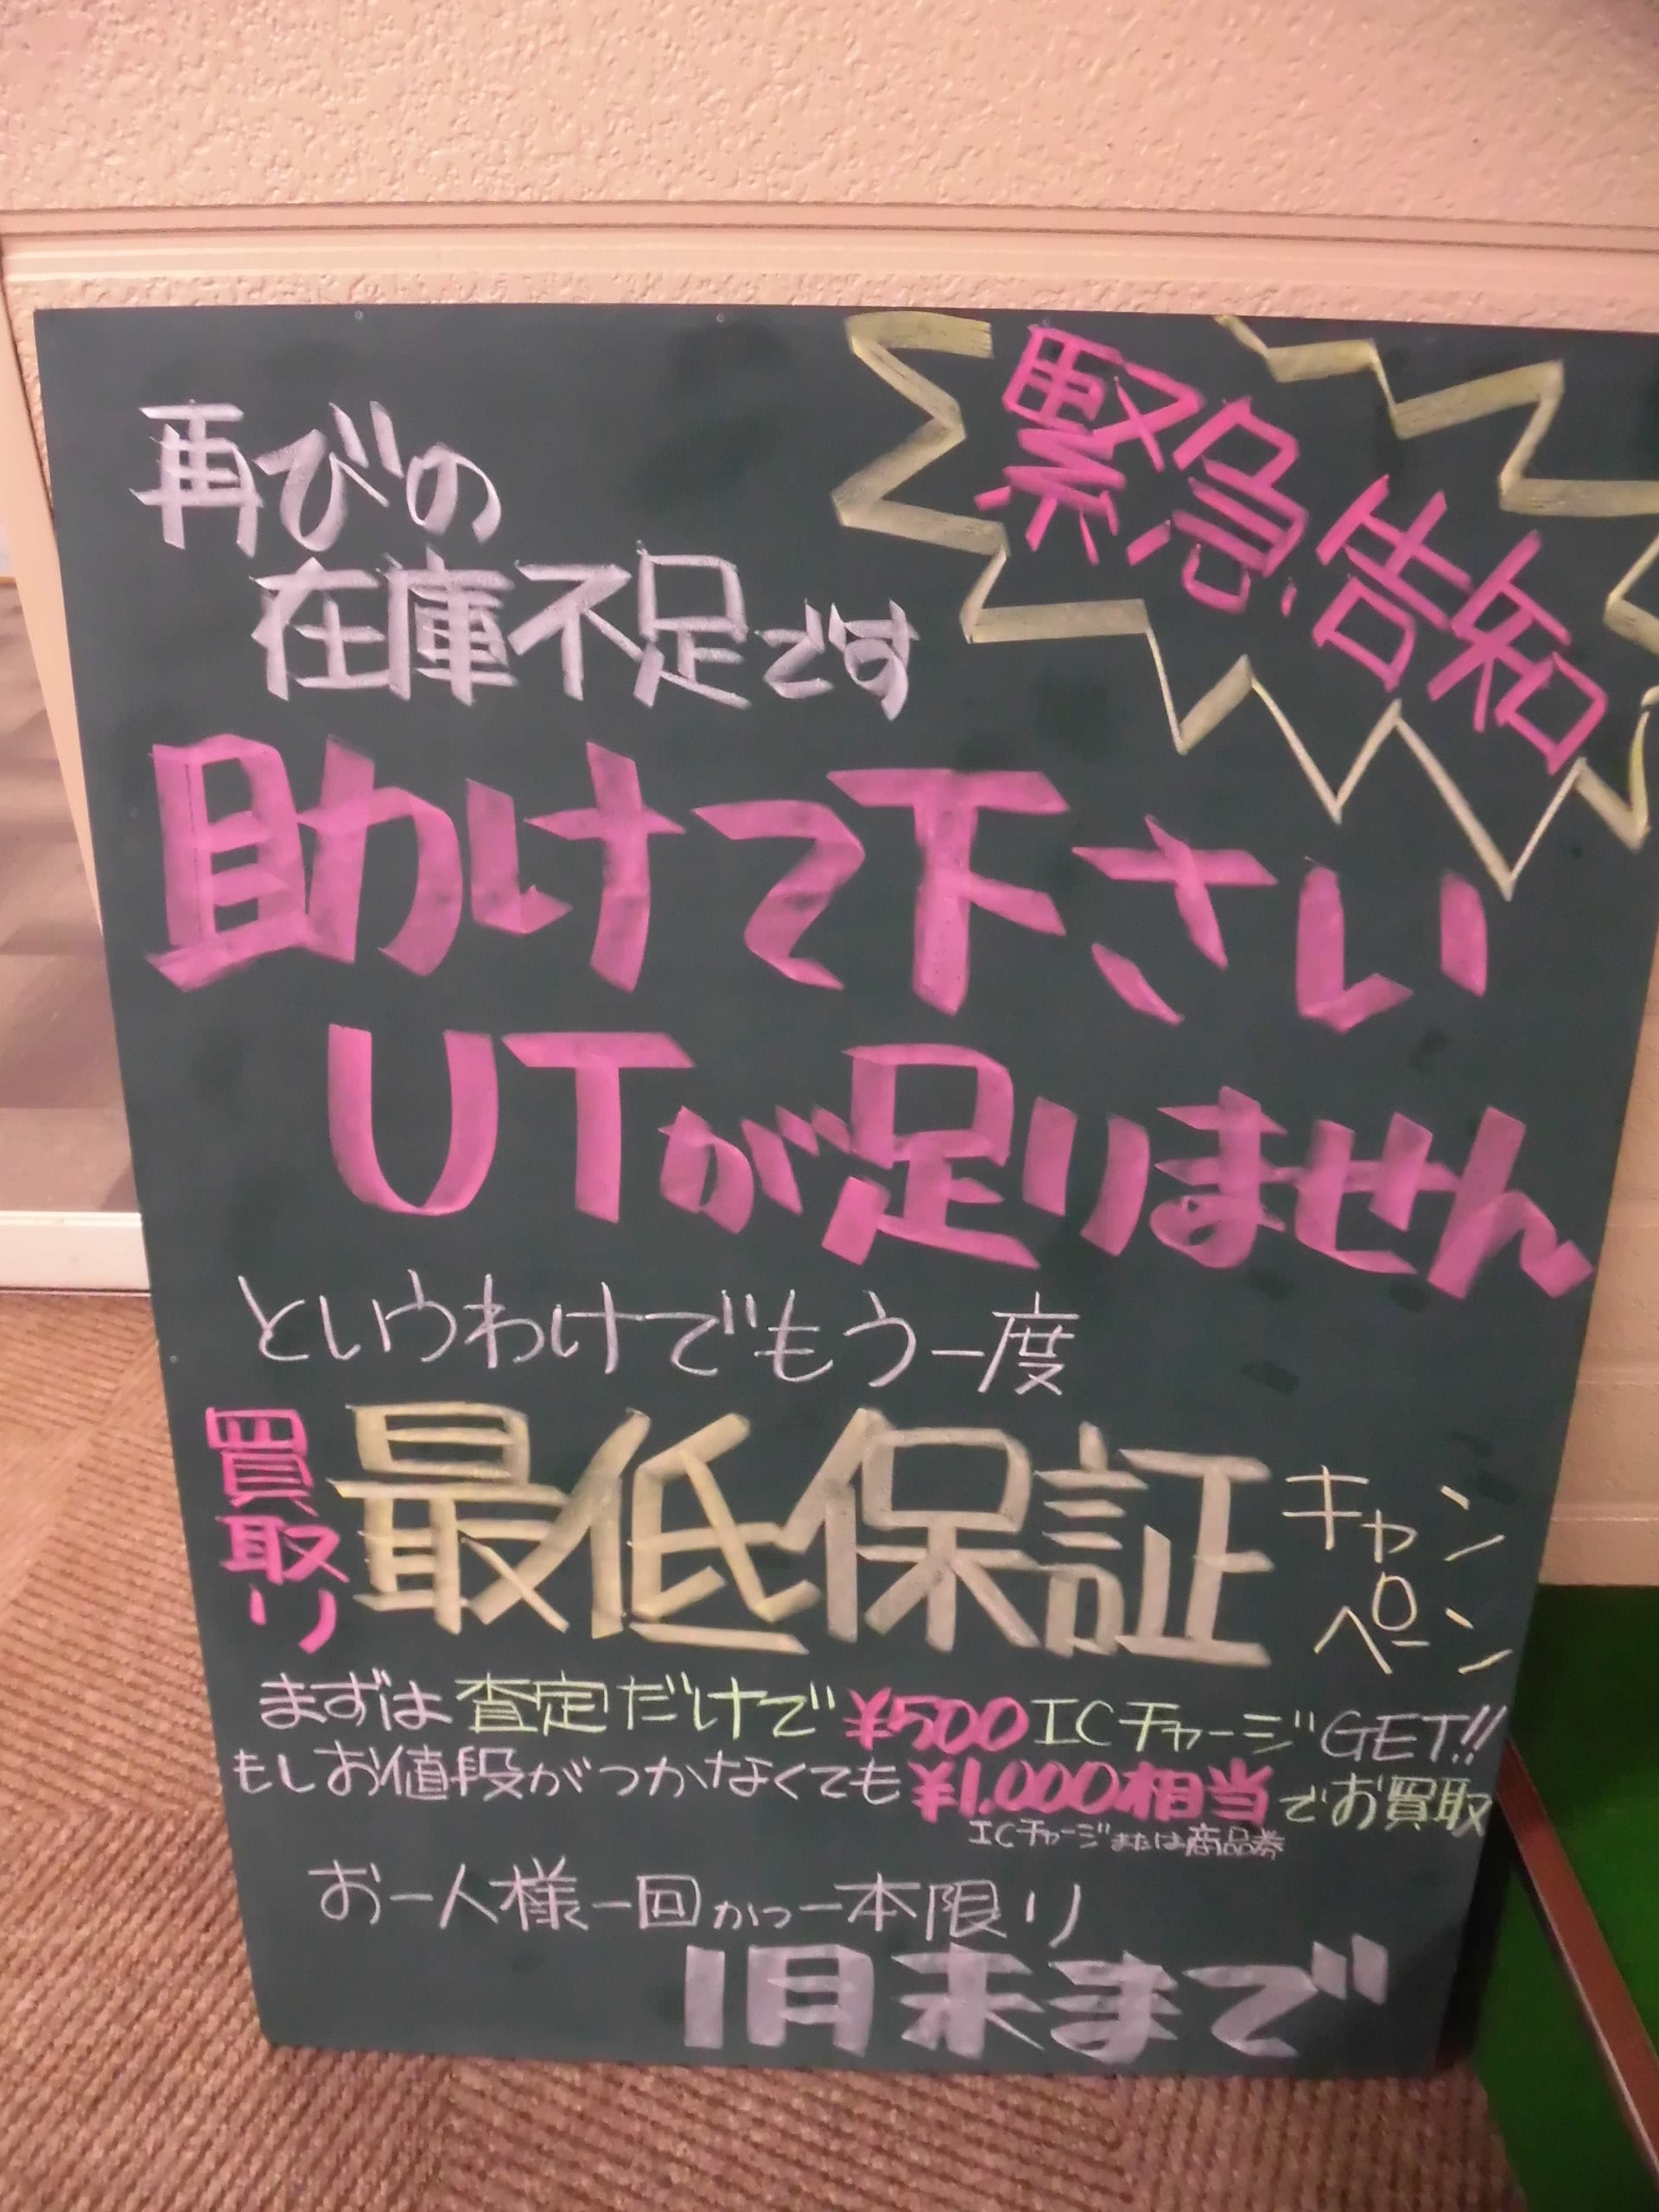 緊急告知
再びの
在庫不足です
助けて下さい
UTが足りません
というわけでもう一度
買取り 最低保証 キャンペーン
まずは査定だけで ¥500 ICチャージ GET!!
もしお値段がつかなくても ¥1,000相当でお買取
ICチャージまたは商品券
お一人様一回かつ一本限り
1月末まで